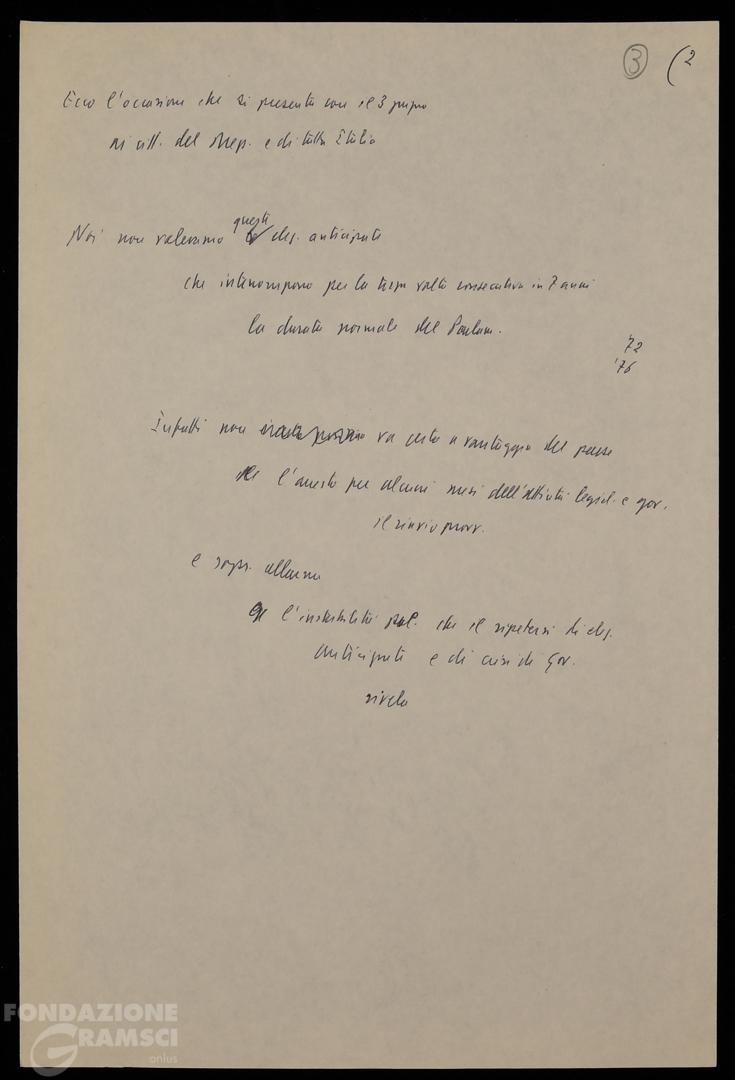 3 (2
Ecco l'occasione che si presenta con il 3 giugno
ai citt. del Mezz. e di tutta Italia
questi
Noi non volevamo elez. anticipate
che interrompono per la terza volta consecutiva in 7 anni
la durata normale del Parlam.
'72
'76
Infatti non va certo a vantaggio del paese
l'arresto per alcuni mesi dell'attività legisl. e gov.
il rinvio provv.
e sopr. allarma
l'instabilità pol. che il ripetersi di elez.
anticipate e di crisi di gov.
rivela
FONDAZIONE
GRAMSCI
onlus